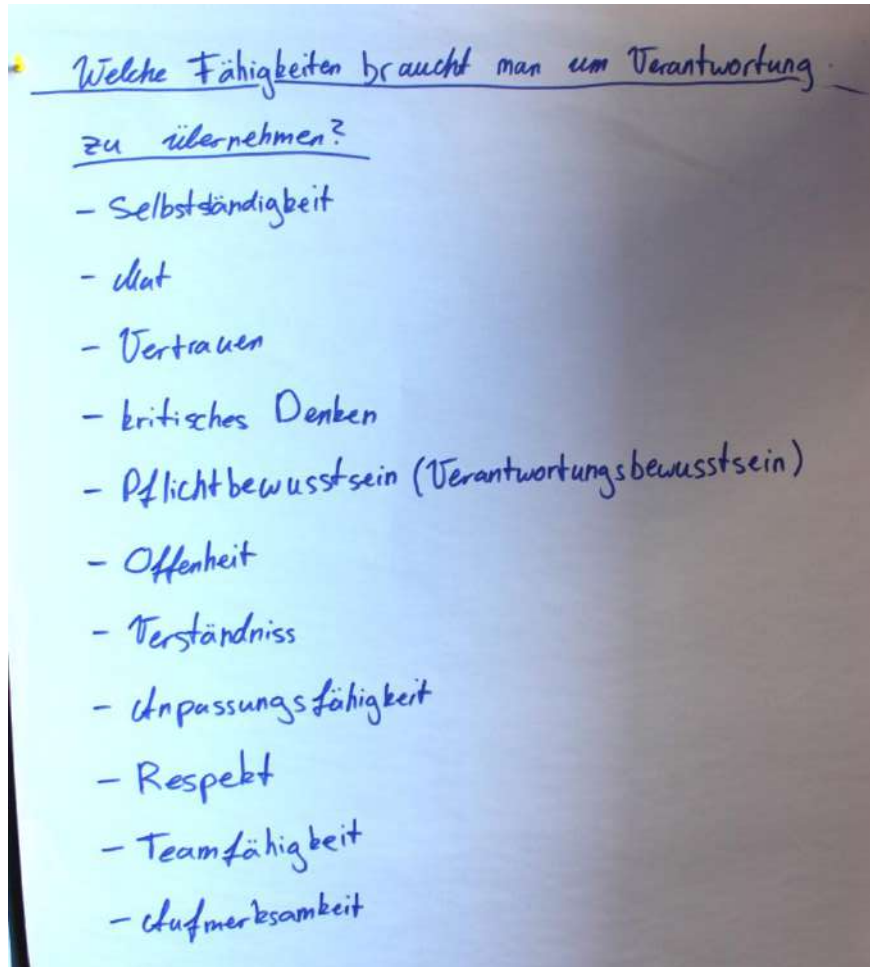 Welche Fähigkeiten braucht man um Verantwortung
zu übernehmen?
- Selbstständigkeit
- Mut
- Vertrauen
- kritisches Denken
- Pflichtbewusstsein (Verantwortungsbewusstsein)
- Offenheit
- Verständniss
- Anpassungsfähigkeit
- Respekt
- Teamfähigkeit
- Aufmerksamkeit